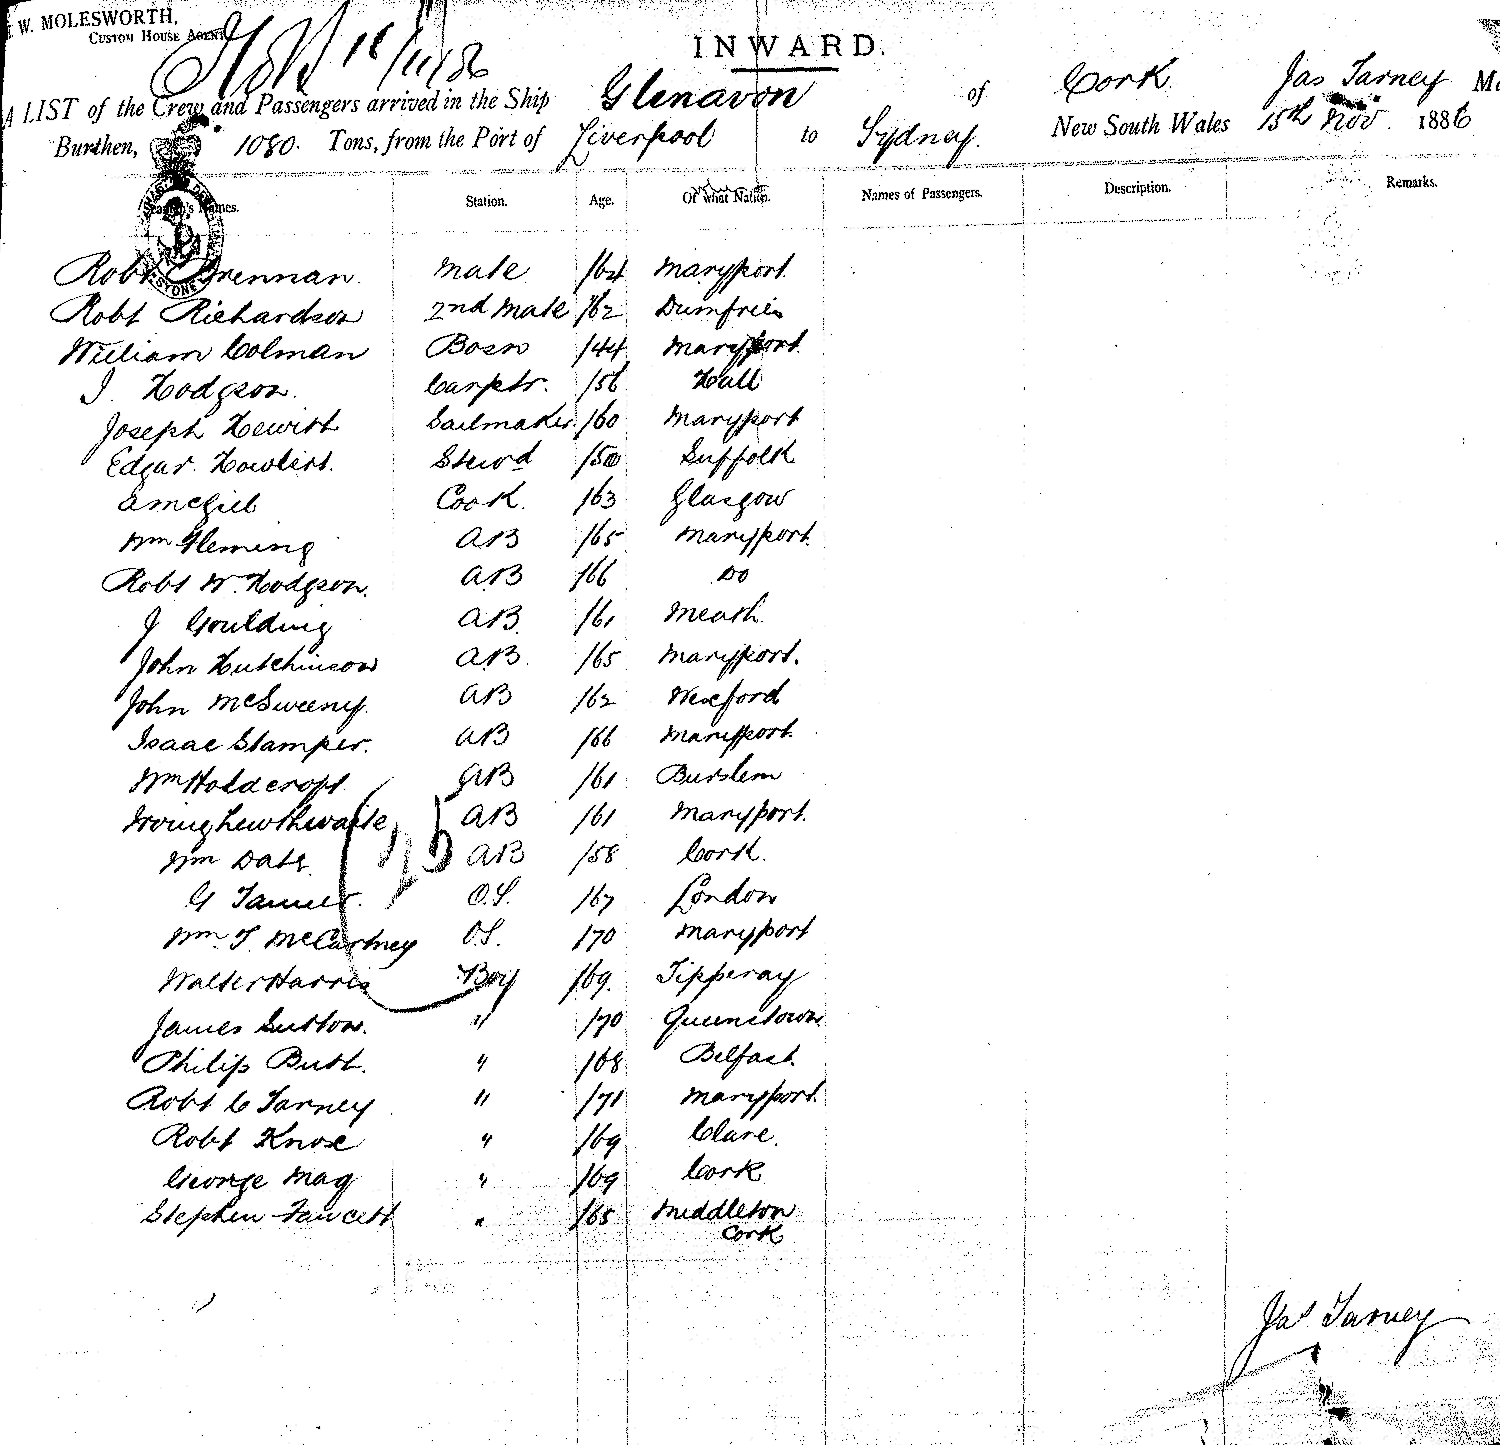 W. MOLESWORTH,
CUSTOM HOUSE AGENT
INWARD.
A LIST of the Crew and Passengers arrived in the Ship Glenavon of Cork Jas Tarney
Burthen, 1080. Tons, from the Port of Liverpool to Sydney. New South Wales 15th Nov. 1886
Names. Station. Age. Of what Nation. Names of Passengers. Description. Remarks.
Robt Brennan. Mate /64 Maryport.
Robt Richardson 2nd Mate /62 Dumfries
William Colman Bosn /44 Maryport
J. Hodgson. Carptr. /56 Hull
Joseph Hewitt Sailmaker /60 Maryport
Edgar Howlett. Stewd /50 Suffolk
A McGill Cook. /63 Glasgow
Wm Fleming AB /65 Maryport.
Robt W. Hodgson. AB /66 Do
J Goulding AB /61 Meath.
John Hutchinson AB. /65 Maryport.
John McSweeny. AB /62 Wexford
Isaac Stamper. AB /66 Maryport.
Wm Holdcroft AB /61 Burslem
Irving Lewthwaite AB /61 Maryport.
Wm Daly AB /58 Cork.
25
G Tanner. O.S. /67 London
Wm T McCartney O.S. /70 Maryport
Walter Harris Boy /69. Tipperay
James Sutton. " /70 Queenstown
Philip Butt. " /68 Belfast.
Robt C Tarney " /71 Maryport.
Robt Knox " /69 Clare.
George Mag " /69 Cork
Stephen Fawcett " /65 Middleton
Cork
Jas Tarney